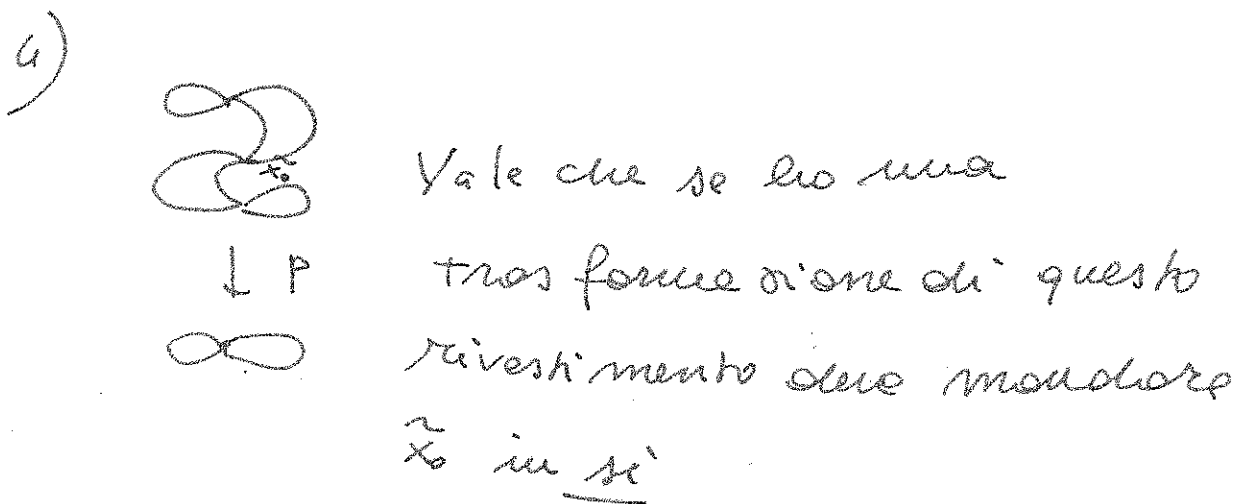 4)
x̃₀
Vale che se ho una
↓ P
trasformazione di questo
rivestimento deve mandare
x̃₀ in sè